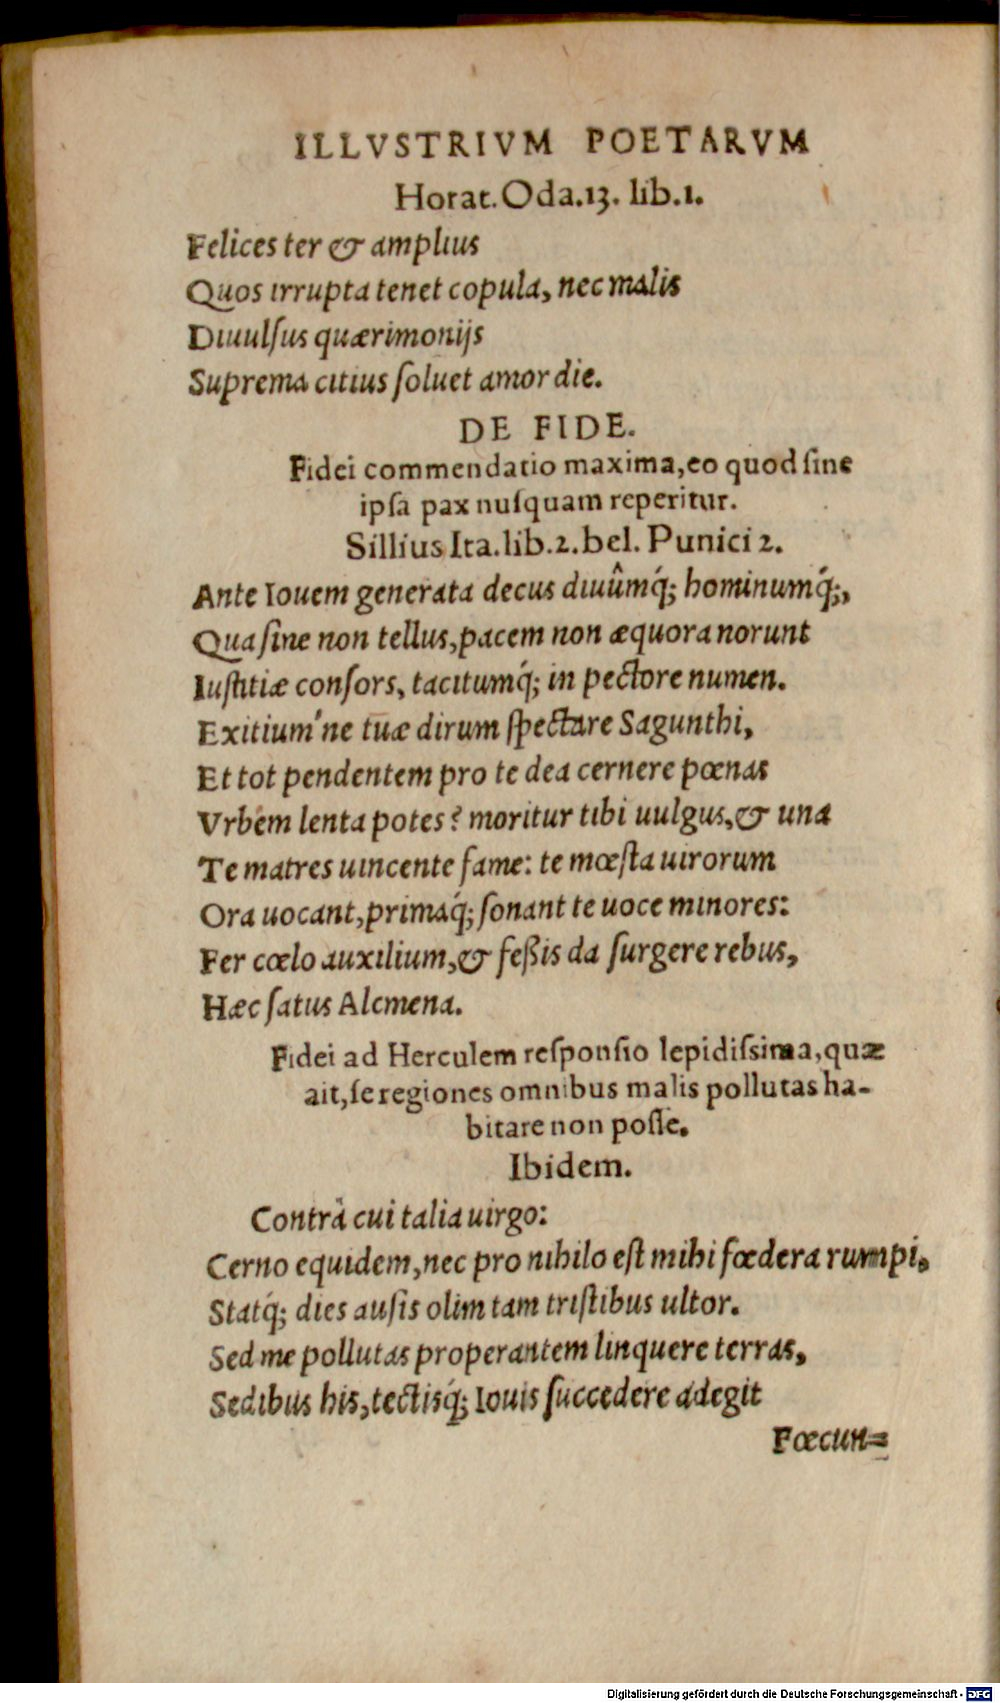 ILLVSTRIVM POETARVM
Horat. Oda.13. lib.1.
Felices ter & amplius
Quos irrupta tenet copula, nec malis
Diuulſus quærimonijs
Suprema citius ſoluet amor die.
DE FIDE.
Fidei commendatio maxima, eo quod ſine
ipſa pax nuſquam reperitur.
Sillius Ita. lib.2. bel. Punici 2.
Ante Iouem generata decus diuûmq́; hominumq́;,
Qua ſine non tellus, pacem non æquora norunt
Iuſtitiæ conſors, tacitumq́; in pectore numen.
Exitium'ne tuæ dirum ſpectare Sagunthi,
Et tot pendentem pro te dea cernere pœnas
Vrbem lenta potes? moritur tibi uulgus, & una
Te matres uincente fame: te mœſta uirorum
Ora uocant, primaq́; ſonant te uoce minores:
Fer cœlo auxilium, & feßis da ſurgere rebus,
Hæc ſatus Alcmena.
Fidei ad Herculem reſponſio lepidiſsima, quæ
ait, ſe regiones omnibus malis pollutas ha-
bitare non poſſe.
Ibidem.
Contrà cui talia uirgo:
Cerno equidem, nec pro nihilo eſt mihi fœdera rumpi,
Statq́; dies auſis olim tam triſtibus ultor.
Sed me pollutas properantem linquere terras,
Sedibus his, tectisq́; Iouis ſuccedere adegit
Fœcun=
Digitalisierung gefördert durch die Deutsche Forschungsgemeinschaft - DFG